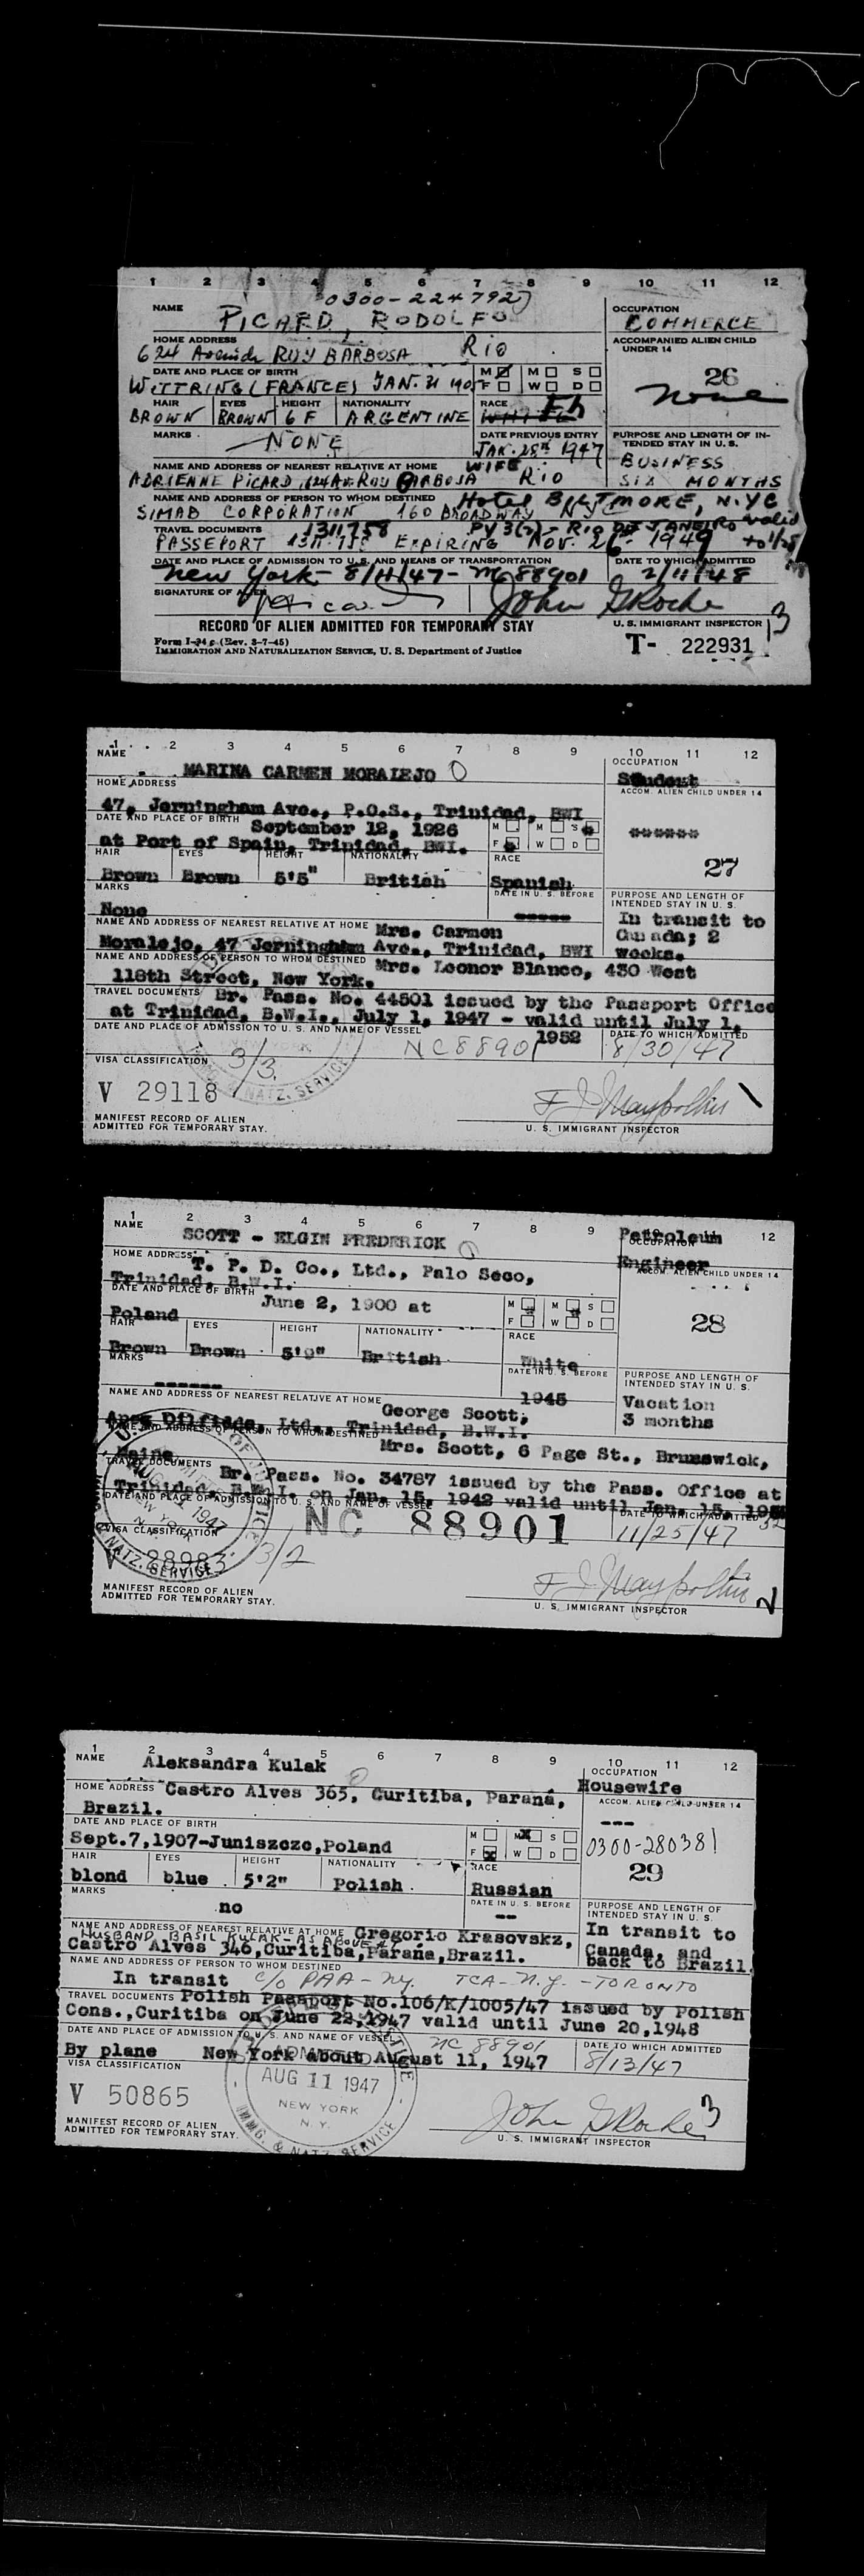 1 2 3 4 5 6 7 8 9 10 11 12
0300-224792
NAME PICARD, RODOLFO
OCCUPATION COMMERCE
HOME ADDRESS
624 Avenida RUY BARBOSA Rio
ACCOMPANIED ALIEN CHILD UNDER 14
26
None
DATE AND PLACE OF BIRTH M F M W S D
WITTRING (FRANCE) JAN. 21
HAIR EYES HEIGHT NATIONALITY RACE
BROWN BROWN 6 F ARGENTINE
MARKS NONE
DATE PREVIOUS ENTRY
JAN. 28th 1947
PURPOSE AND LENGTH OF INTENDED STAY IN U. S.
BUSINESS
SIX MONTHS
NAME AND ADDRESS OF NEAREST RELATIVE AT HOME WIFE
ADRIENNE PICARD, RUY BARBOSA RIO
NAME AND ADDRESS OF PERSON TO WHOM DESTINED Hotel BILTMORE, N.Y.C
SIMAB CORPORATION 160 BROADWAY NYC
TRAVEL DOCUMENTS 1311758 PV 3(2) - RIO DE JANEIRO valid
PASSEPORT EXPIRING NOV. 1949
DATE AND PLACE OF ADMISSION TO U. S. AND MEANS OF TRANSPORTATION
New York - 8/11/47 - NC 88901
DATE TO WHICH ADMITTED
2/11/48
SIGNATURE OF ALIEN
John G Roche
RECORD OF ALIEN ADMITTED FOR TEMPORARY STAY
U. S. IMMIGRANT INSPECTOR 3
Form I-94 c (Rev. 3-7-45)
IMMIGRATION AND NATURALIZATION SERVICE, U. S. Department of Justice
T- 222931
1 2 3 4 5 6 7 8 9 10 11 12
NAME MARINA CARMEN MORALEJO
OCCUPATION
Student
HOME ADDRESS
47, Jerningham Ave., P.O.S., Trinidad, BWI
ACCOM. ALIEN CHILD UNDER 14
******
27
DATE AND PLACE OF BIRTH September 12, 1926
at Port of Spain, Trinidad, BWI.
M F M W S D
HAIR EYES HEIGHT NATIONALITY RACE
Brown Brown 5'5" British Spanish
MARKS
None
DATE IN U. S. BEFORE
-----
PURPOSE AND LENGTH OF INTENDED STAY IN U. S.
In transit to
Canada; 2
weeks.
NAME AND ADDRESS OF NEAREST RELATIVE AT HOME Mrs. Carmen
Moralejo, 47 Jerningham Ave., Trinidad, BWI
NAME AND ADDRESS OF PERSON TO WHOM DESTINED Mrs. Leonor Blanco, 430 West
118th Street, New York.
TRAVEL DOCUMENTS Br. Pass. No. 44501 issued by the Passport Office
at Trinidad, B.W.I., July 1, 1947 - valid until July 1,
1952
DATE AND PLACE OF ADMISSION TO U. S. AND NAME OF VESSEL
NC88901
DATE TO WHICH ADMITTED
8/30/47
VISA CLASSIFICATION 3/3
V 29118
MANIFEST RECORD OF ALIEN
ADMITTED FOR TEMPORARY STAY.
U. S. IMMIGRANT INSPECTOR
1 2 3 4 5 6 7 8 9 12
NAME SCOTT - ELGIN FREDERICK
OCCUPATION
Petroleum
Engineer
HOME ADDRESS T. P. D. Co., Ltd., Palo Seco,
Trinidad, B.W.I.
ACCOM. ALIEN CHILD UNDER 14
28
DATE AND PLACE OF BIRTH June 2, 1900 at
Poland
M F M W S D
HAIR EYES HEIGHT NATIONALITY RACE
Brown Brown 5'9" British White
MARKS
------
DATE IN U. S. BEFORE
1945
PURPOSE AND LENGTH OF INTENDED STAY IN U. S.
Vacation
3 months
NAME AND ADDRESS OF NEAREST RELATIVE AT HOME George Scott,
Ltd., Trinidad, B.W.I.
NAME AND ADDRESS OF PERSON TO WHOM DESTINED Mrs. Scott, 6 Page St., Brunswick,
Maine
TRAVEL DOCUMENTS Br. Pass. No. 34787 issued by the Pass. Office at
Trinidad, B.W.I. on Jan. 15, 1942 valid until Jan. 15,
DATE AND PLACE OF ADMISSION TO U. S. AND NAME OF VESSEL
NC 88901
DATE TO WHICH ADMITTED
11/25/47
VISA CLASSIFICATION
V 28983 3/2
MANIFEST RECORD OF ALIEN
ADMITTED FOR TEMPORARY STAY.
U. S. IMMIGRANT INSPECTOR 2
1 2 3 4 5 6 7 8 9 10 11 12
NAME Aleksandra Kulak
OCCUPATION
Housewife
HOME ADDRESS Castro Alves 365, Curitiba, Paraná,
Brazil.
ACCOM. ALIEN CHILD UNDER 14
---
0300-280381
29
DATE AND PLACE OF BIRTH
Sept.7,1907-Juniszcze,Poland
M F M W S D
HAIR EYES HEIGHT NATIONALITY RACE
blond blue 5'2" Polish Russian
MARKS
no
DATE IN U. S. BEFORE
--
PURPOSE AND LENGTH OF INTENDED STAY IN U. S.
In transit to
Canada, and
back to Brazil.
NAME AND ADDRESS OF NEAREST RELATIVE AT HOME Gregorio Krasovskz,
HUSBAND BASIL KULAK - AS ABOVE
Castro Alves 346,Curitiba,Parana,Brazil.
NAME AND ADDRESS OF PERSON TO WHOM DESTINED
In transit c/o PAA - NY. TCA - N.Y. - TORONTO
TRAVEL DOCUMENTS Polish Passport No.106/K/1005/47 issued by Polish
Cons.,Curitiba on June 22,1947 valid until June 20,1948
DATE AND PLACE OF ADMISSION TO U. S. AND NAME OF VESSEL NC 88901
By plane New York about August 11, 1947
DATE TO WHICH ADMITTED
8/13/47
VISA CLASSIFICATION
V 50865
ADMITTED
AUG 11 1947
NEW YORK
N. Y.
IMMG. & NATZ. SERVICE
John G Roche 3
MANIFEST RECORD OF ALIEN
ADMITTED FOR TEMPORARY STAY.
U. S. IMMIGRANT INSPECTOR